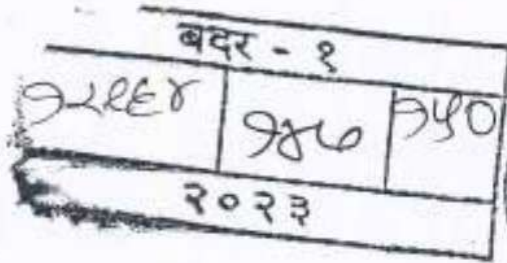 बदर - १
१२११६४ १४७ १५०
२०२३